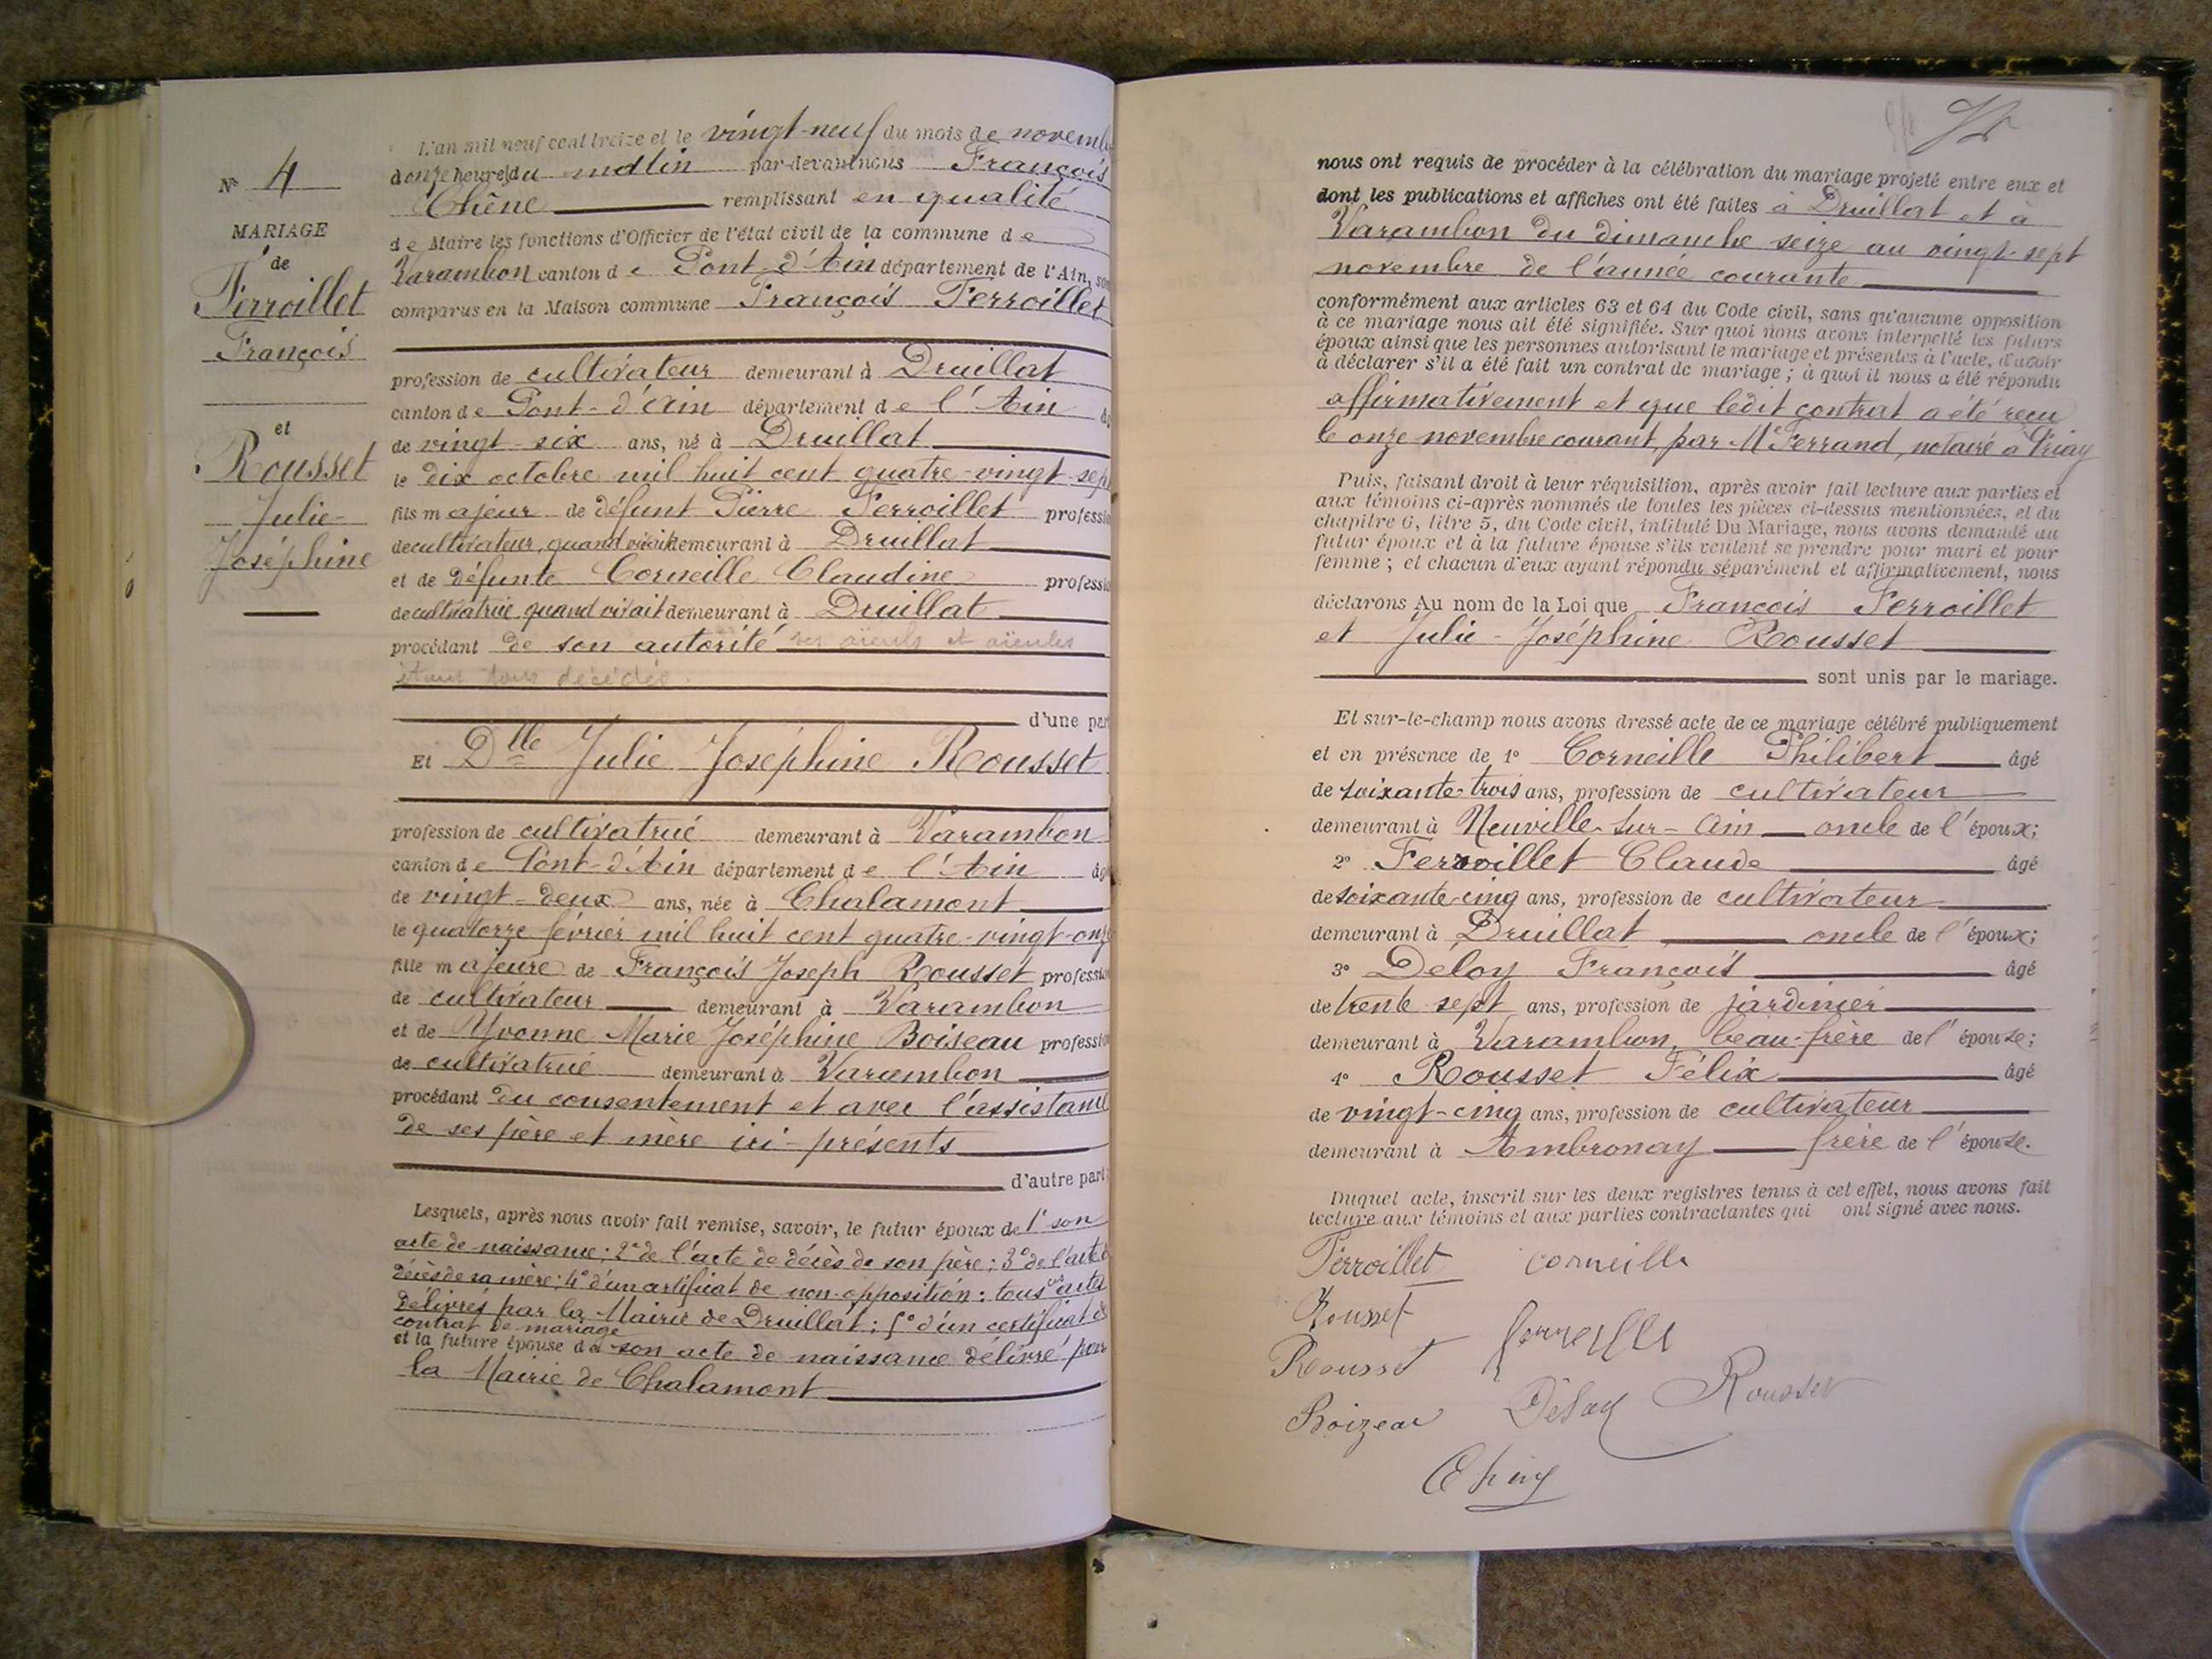 N° 4
MARIAGE
de
Perroillet
François
et
Rousset
Julie-
Joséphine
L'an mil neuf cent treize et le vingt-neuf du mois de novemb
à onze heures du matin par-devant nous François
Chêne remplissant en qualité
de Maire les fonctions d'Officier de l'état civil de la commune de
Varambon canton de Pont-d'Ain département de l'Ain, so
comparus en la Maison commune François Perroillet
profession de cultivateur demeurant à Druillat
canton de Pont-d'Ain département de l'Ain
de vingt-six ans, né à Druillat
le dix octobre mil huit cent quatre-vingt-sep
fils majeur de défunt Pierre Perroillet professio
de cultivateur, quand vivait demeurant à Druillat
et de défunte Corneille Claudine professio
de cultivatrice, quand vivait demeurant à Druillat
procédant de son autorité ses aïeuls et aïeules
étant tous décédés.
d'une par
Et Dlle Julie-Joséphine Rousset
profession de cultivatrice demeurant à Varambon
canton de Pont-d'Ain département de l'Ain âg
de vingt-deux ans, née à Chalamont
le quatorze février mil huit cent quatre-vingt-onze
fille majeure de François Joseph Rousset professio
de cultivateur demeurant à Varambon
et de Yvonne Marie Joséphine Boiseau professio
de cultivatrice demeurant à Varambon
procédant du consentement et avec l'assistance
de ses père et mère ici-présents
d'autre part;
Lesquels, après nous avoir fait remise, savoir, le futur époux de 1° son
acte de naissance; 2° de l'acte de décès de son père; 3° de l'acte d
décès de sa mère; 4° d'un certificat de non-opposition: tous ces actes
délivrés par la Mairie de Druillat; 5° d'un certificat de
contrat de mariage
et la future épouse de son acte de naissance délivré par
la Mairie de Chalamont
nous ont requis de procéder à la célébration du mariage projeté entre eux et
dont les publications et affiches ont été faites à Druillat et à
Varambon du dimanche seize au vingt-sept
novembre de l'année courante
conformément aux articles 63 et 64 du Code civil, sans qu'aucune opposition
à ce mariage nous ait été signifiée. Sur quoi nous avons interpellé les futurs
époux ainsi que les personnes autorisant le mariage et présentes à l'acte, d'avoir
à déclarer s'il a été fait un contrat de mariage; à quoi il nous a été répondu
affirmativement et que ledit contrat a été reçu
le onze novembre courant, par Me Ferrand, notaire à Priay
Puis, faisant droit à leur réquisition, après avoir fait lecture aux parties et
aux témoins ci-après nommés de toutes les pièces ci-dessus mentionnées, et du
chapitre 6, titre 5, du Code civil, intitulé Du Mariage, nous avons demandé au
futur époux et à la future épouse s'ils veulent se prendre pour mari et pour
femme; et chacun d'eux ayant répondu séparément et affirmativement, nous
déclarons Au nom de la Loi que François Perroillet
et Julie-Joséphine Rousset
sont unis par le mariage.
Et sur-le-champ nous avons dressé acte de ce mariage célébré publiquement
et en présence de 1° Corneille Philibert âgé
de soixante-trois ans, profession de cultivateur
demeurant à Neuville-sur-Ain oncle de l'époux;
2° Perroillet Claude âgé
de soixante-cinq ans, profession de cultivateur
demeurant à Druillat oncle de l'époux;
3° Deloy François âgé
de trente-sept ans, profession de jardinier
demeurant à Varambon, beau-frère de l'épouse;
4° Rousset Félix âgé
de vingt-cinq ans, profession de cultivateur
demeurant à Ambronay frère de l'épouse.
Duquel acte, inscrit sur les deux registres tenus à cet effet, nous avons fait
lecture aux témoins et aux parties contractantes qui ont signé avec nous.
Perroillet corneille
Rousset
Rousset
Boizeau Deloy Rousset
Chêne